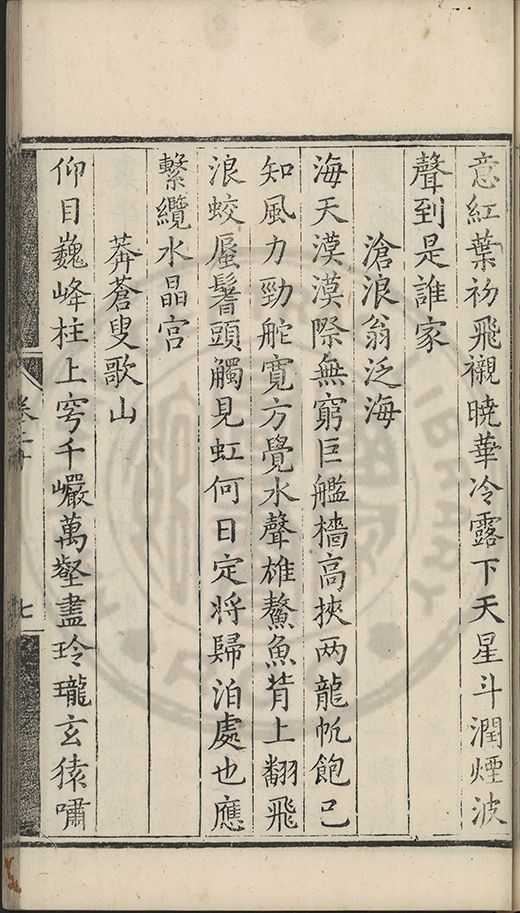 意紅葉初飛襯曉華冷露下天星斗潤煙波
聲到是誰家
滄浪翁泛海
海天漠漠際無窮巨艦檣高挾兩龍帆飽已
知風力勁舵寬方覺水聲雄鰲魚背上翻飛
浪蛟蜃鬐頭觸見虹何日定將歸泊處也應
繫纜水晶宮
莽蒼叟歌山
仰目巍峰柱上穹千巖萬壑盡玲瓏玄猿嘯
七